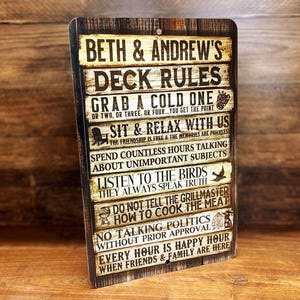 BETH & ANDREW'S
DECK RULES
GRAB A COLD ONE
OR TWO, OR THREE, OR FOUR...YOU GET THE POINT
SIT & RELAX WITH US
THE FRIENDSHIP IS FREE & THE MEMORIES ARE PRICELESS
SPEND COUNTLESS HOURS TALKING
ABOUT UNIMPORTANT SUBJECTS
LISTEN TO THE BIRDS
THEY ALWAYS SPEAK TRUTH
DO NOT TELL THE GRILLMASTER
HOW TO COOK THE MEAT
NO TALKING POLITICS
WITHOUT PRIOR APPROVAL
EVERY HOUR IS HAPPY HOUR
WHEN FRIENDS & FAMILY ARE HERE